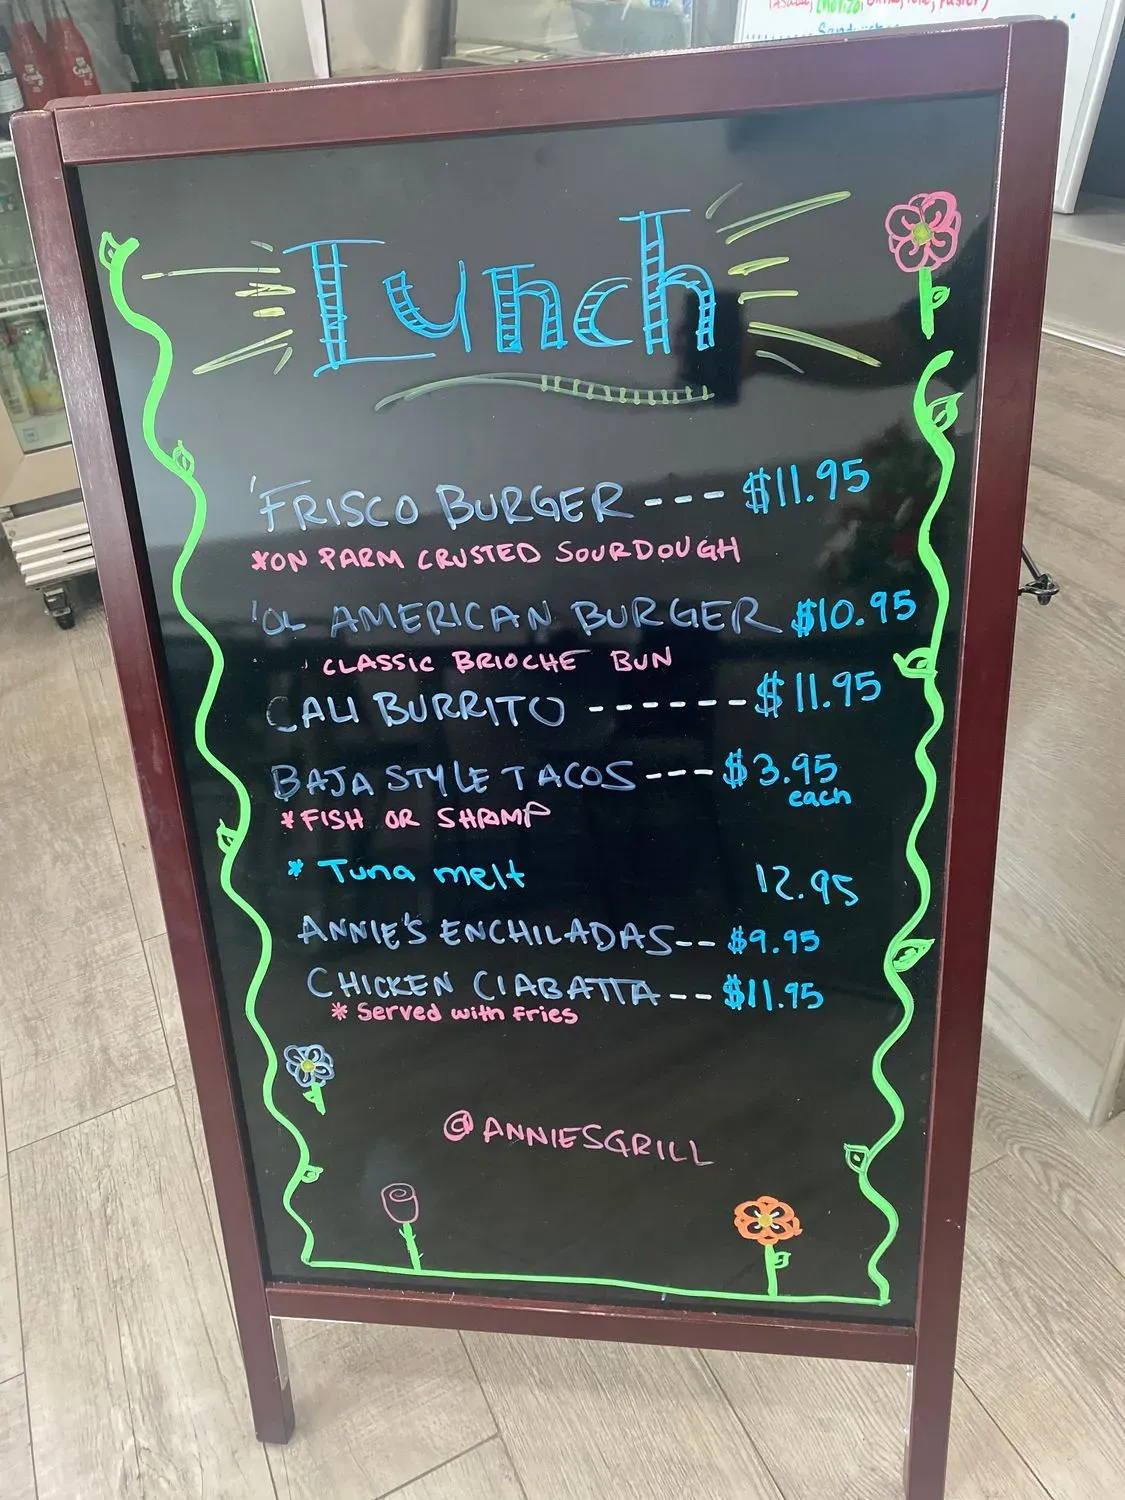 (Asada, Chorizo,
Lunch
'FRISCO BURGER --- $11.95
*ON PARM CRUSTED SOURDOUGH
'OL AMERICAN BURGER $10.95
CLASSIC BRIOCHE BUN
CALI BURRITO ------ $11.95
BAJA STYLE TACOS --- $3.95
each
*FISH OR SHRIMP
* Tuna melt 12.95
ANNIE'S ENCHILADAS -- $9.95
CHICKEN CIABATTA -- $11.95
* Served with fries
@ANNIESGRILL